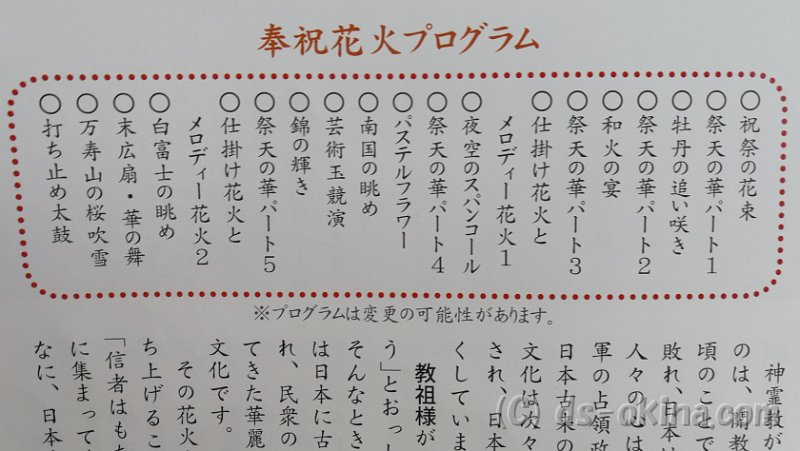 奉祝花火プログラム
○祝祭の花束
○祭天の華パート1
○牡丹の追い咲き
○祭天の華パート2
○和火の宴
○祭天の華パート3
○仕掛け花火と
メロディー花火1
○夜空のスパンコール
○祭天の華パート4
○パステルフラワー
○南国の眺め
○芸術玉競演
○錦の輝き
○祭天の華パート5
○仕掛け花火と
メロディー花火2
○白富士の眺め
○末広扇・華の舞
○万寿山の桜吹雪
○打ち止め太鼓
※プログラムは変更の可能性があります。
神霊教が
のは、開教
頃のことで
敗れ、日本は
人々の心は
軍の占領政
日本古来の
文化は次々
され、日本
くしていま
教祖様が
う」とおっし
そんなとき
は日本に古
れ、民衆の
てきた華麗
文化です。
その花火
ち上げるこ
「信者はも
に集まって
なに、日本
(C) ds-okina.com